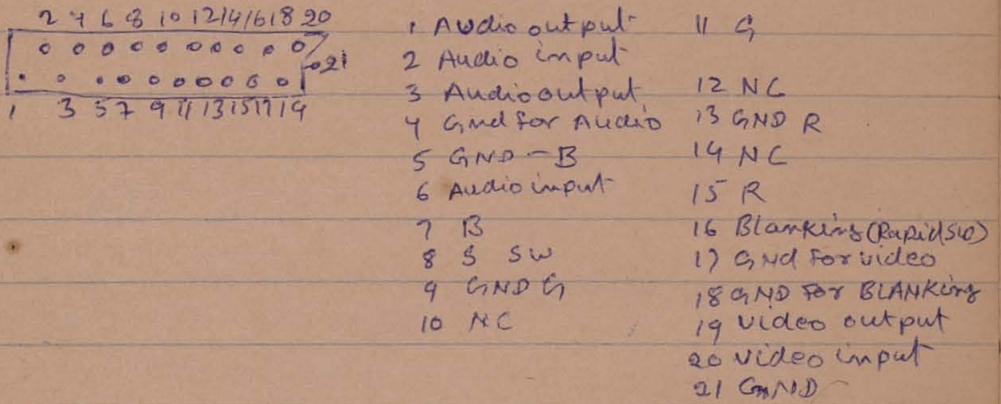 2 4 6 8 10 12 14 16 18 20
21
1 3 5 7 9 11 13 15 17 19
1 Audio output
2 Audio input
3 Audio output
4 Gnd for Audio
5 GND - B
6 Audio input
7 B
8 S SW
9 GND G
10 NC
11 G
12 NC
13 GND R
14 NC
15 R
16 Blanking (Rapid SW)
17 GNd For video
18 GND For BLANKing
19 Video output
20 Video input
21 GND